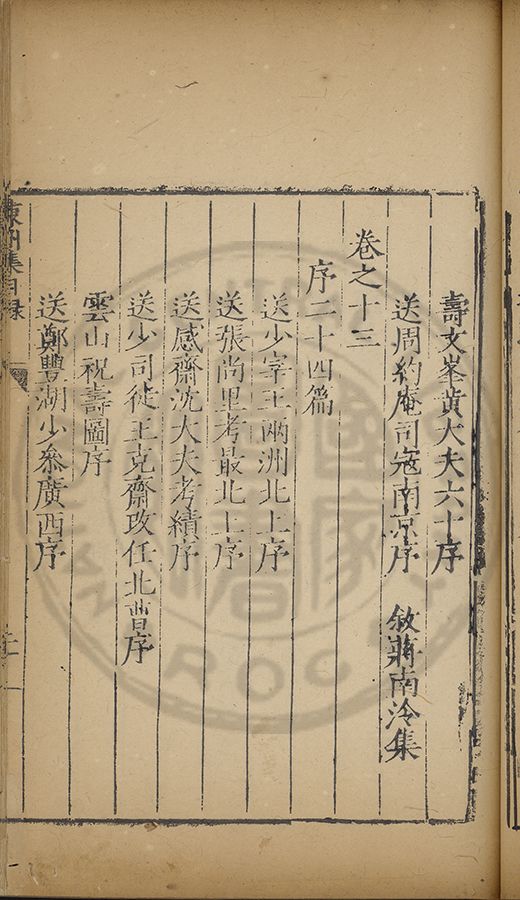 壽文峯黃大夫六十序
送周約庵司寇南京序　敘蔣南泠集
卷之十三
序二十四篇
送少宰王兩洲北上序
送張尚里考最北上序
送感齋沈大夫考績序
送少司徒王克齋改任北曹序
雲山祝壽圖序
送鄭豐湖少叅廣西序
東洲集目録